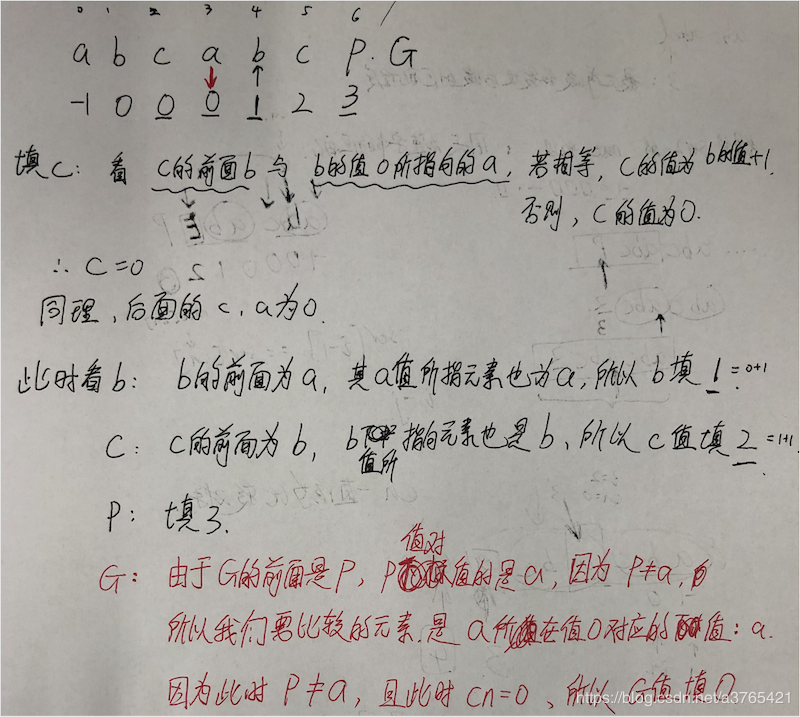 0 1 2 3 4 5 6 /
a b c a b c p. G
-1 0 0 0 1 2 3
填C: 看 C的前面b 与 b的值0所指向的a, 若相等, C的值为b的值+1.
否则, C的值为0.
∴ C=0
同理, 后面的 c, a为0.
此时看b: b的前面为a, 其a值所指元素也为a, 所以 b填 1 =0+1
C: C的前面为b, b值所指向元素也是b、所以c值填2 =1+1.
P: 填3.
G: 由于G的前面是P, P值对值的是a, 因为 P≠a,
所以我们要比较的元素是 a所在值0对应的值: a.
因为此时 P≠a, 且此时 cn=0, 所以G值填0
https://blog.csdn.net/a3765421